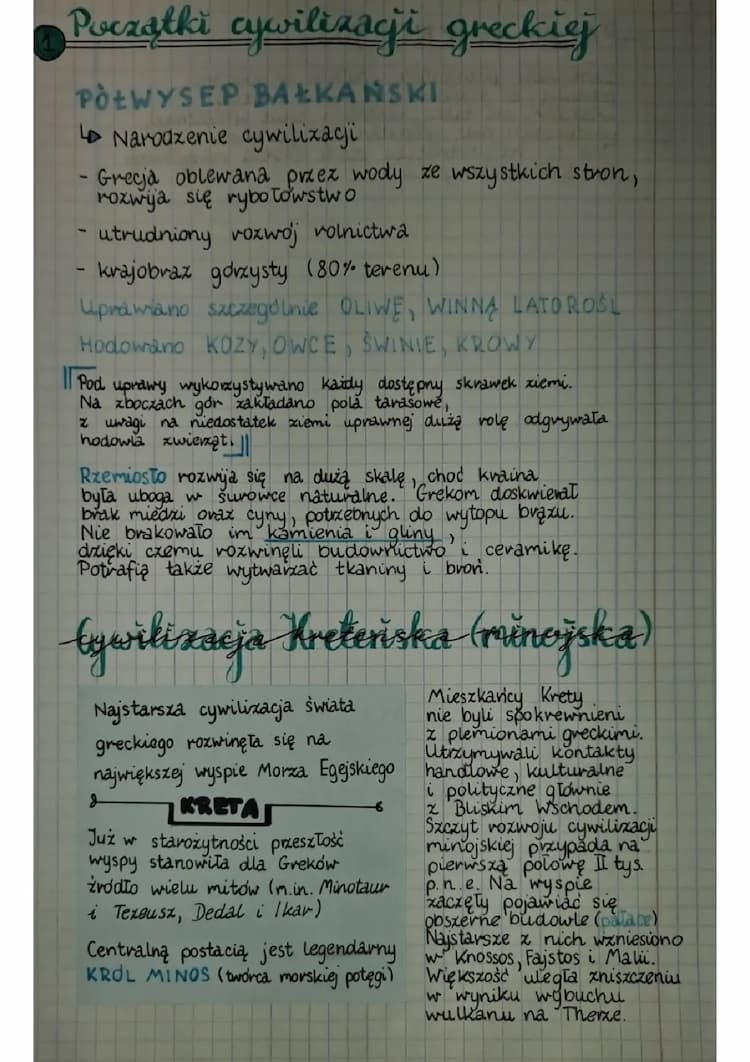 1 Początki cywilizacji greckiej
PÓŁWYSEP BAŁKAŃSKI
↳ Narodzenie cywilizacji
- Grecja oblewana przez wody ze wszystkich stron,
rozwija się rybołówstwo
- utrudniony rozwój rolnictwa
- krajobraz górzysty (80% terenu)
Uprawiano szczególnie OLIWĘ, WINNĄ LATOROŚL
Hodowano KOZY, OWCE, ŚWINIE, KROWY
Pod uprawy wykorzystywano każdy dostępny skrawek ziemi.
Na zboczach gór zakładano pola tarasowe,
z uwagi na niedostatek ziemi uprawnej dużą rolę odgrywała
hodowla zwierząt.
Rzemiosło rozwija się na dużą skalę, choć kraina
była uboga w surowce naturalne. Grekom doskwierał
brak miedzi oraz cyny, potrzebnych do wytopu brązu.
Nie brakowało im kamienia i gliny,
dzięki czemu rozwinęli budownictwo i ceramikę.
Potrafią także wytwarzać tkaniny i broń.
Cywilizacja Kreteńska (minojska)
Najstarsza cywilizacja świata
greckiego rozwinęła się na
największej wyspie Morza Egejskiego
KRETA
Już w starożytności przeszłość
wyspy stanowiła dla Greków
źródło wielu mitów (m.in. Minotaur
i Tezeusz, Dedal i Ikar)
Centralną postacią jest legendarny
KRÓL MINOS (twórca morskiej potęgi)
Mieszkańcy Krety
nie byli spokrewnieni
z plemionami greckimi.
Utrzymywali kontakty
handlowe, kulturalne
i polityczne głównie
z Bliskim Wschodem.
Szczyt rozwoju cywilizacji
minojskiej przypada na
pierwszą połowę II tys.
p.n.e. Na wyspie
zaczęły pojawiać się
obszerne budowle (pałace)
Najstarsze z nich wzniesiono
w Knossos, Fajstos i Malii.
Większość uległa zniszczeniu
w wyniku wybuchu
wulkanu na Therze.